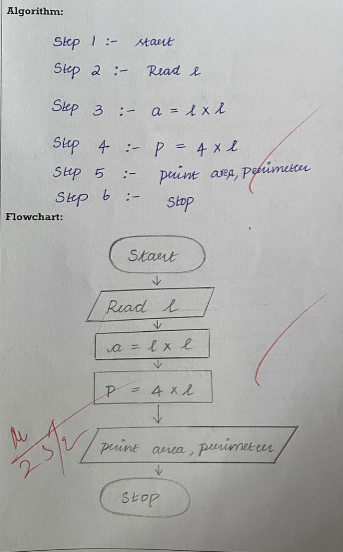 Algorithm:
Step 1 :- start
Step 2 :- Read l
Step 3 :- a = l x l
Step 4 :- P = 4 x l
Step 5 :- print area, perimeter
Step 6 :- Stop
Flowchart:
Start
Read l
a = l x l
P = 4 x l
print area, perimeter
Stop